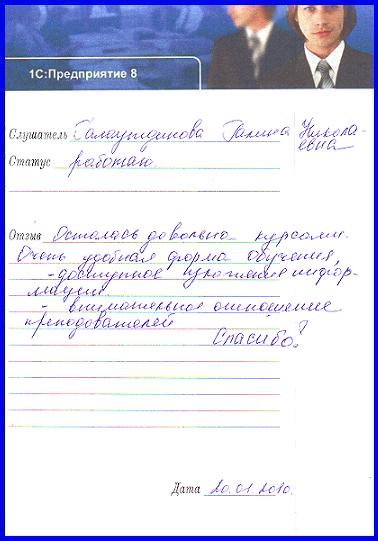 1С:Предприятие 8
Слушатель Галина Никола-
евна
Статус работаю
Отзыв Осталась довольна курсами.
Очень удобная форма обучения,
- доступное изложение инфор-
мации
- внимательное отношение
преподавателей
Спасибо!
Дата 20.01.2010.